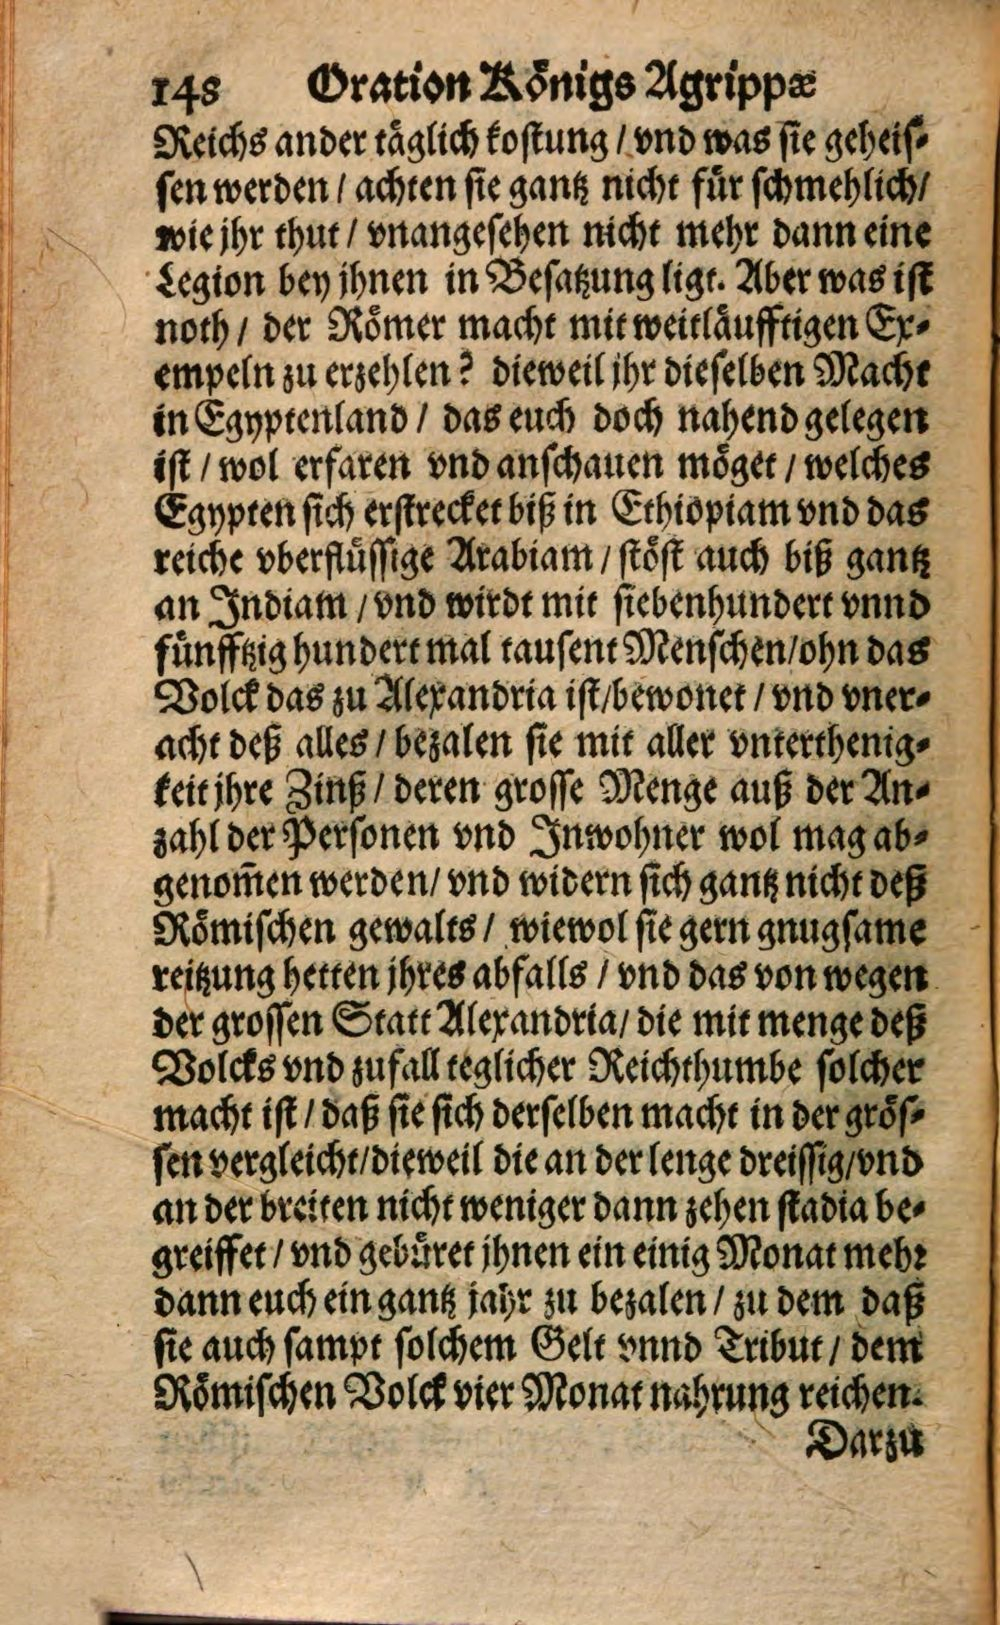 148 Oration Königs Agrippæ
Reichs ander täglich kostung / vnd was sie geheis-
sen werden / achten sie gantz nicht für schmehlich /
wie jhr thut / vnangesehen nicht mehr dann eine
Legion bey jhnen in Besatzung ligt. Aber was ist
noth / der Römer macht mit weitläufftigen Ex-
empeln zu erzehlen? dieweil jhr dieselben Macht
in Egyptenland / das euch doch nahend gelegen
ist / wol erfaren vnd anschauen möget / welches
Egypten sich erstrecket biß in Ethiopiam vnd das
reiche vberflüssige Arabiam / stöst auch biß gantz
an Indiam / vnd wirdt mit siebenhundert vnnd
fünfftzig hundert mal tausent Menschen / ohn das
Volck das zu Alexandria ist / bewonet / vnd vner-
acht deß alles / bezalen sie mit aller vnterthenig-
keit jhre Zinß / deren grosse Menge auß der An-
zahl der Personen vnd Inwohner wol mag ab-
genom̄en werden / vnd widern sich gantz nicht deß
Römischen gewalts / wiewol sie gern gnugsame
reitzung hetten jhres abfalls / vnd das von wegen
der grossen Statt Alexandria / die mit menge deß
Volcks vnd zufall teglicher Reichthumbe solcher
macht ist / daß sie sich derselben macht in der grös-
sen vergleicht / dieweil die an der lenge dreissig / vnd
an der breiten nicht weniger dann zehen stadia be-
greiffet / vnd gebüret jhnen ein einig Monat mehr
dann euch ein gantz jahr zu bezalen / zu dem daß
sie auch sampt solchem Gelt vnnd Tribut / dem
Römischen Volck vier Monat nahrung reichen.
Darzu